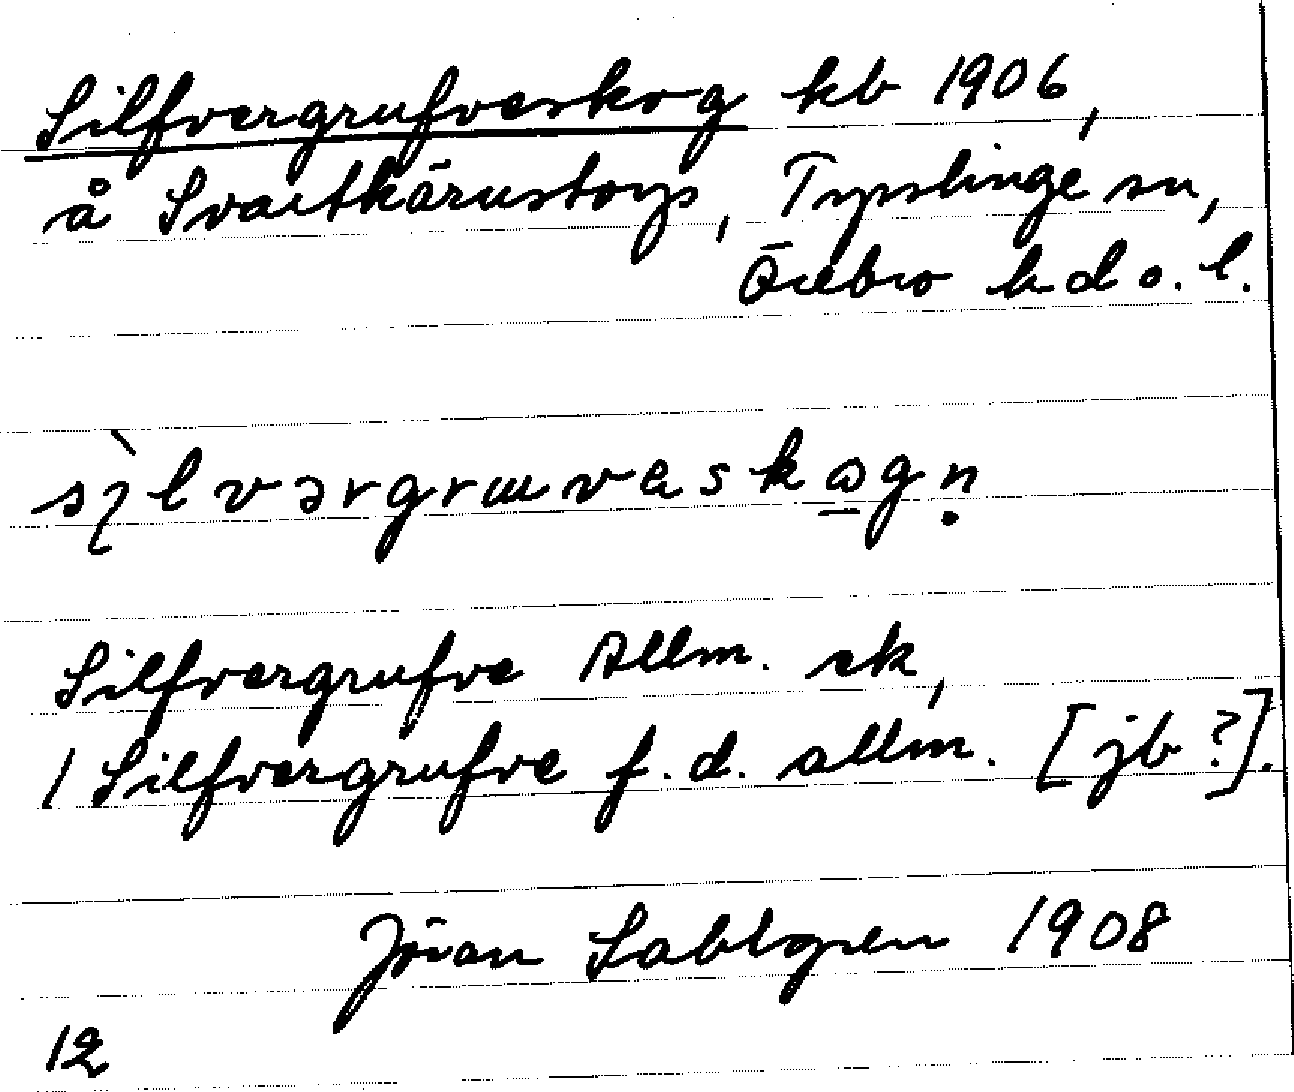 Silfvergrufveskog kb 1906,
å Svartkärnstorp, Tysslinge sn,
Örebro hd o. l.
sı̨̀lvərgrɯvaskɷ̱gṇ
Silfvergrufve Allm. ek,
1 Silfvergrufve f.d. allm. [jb?].
Jöran Sahlgren 1908
12